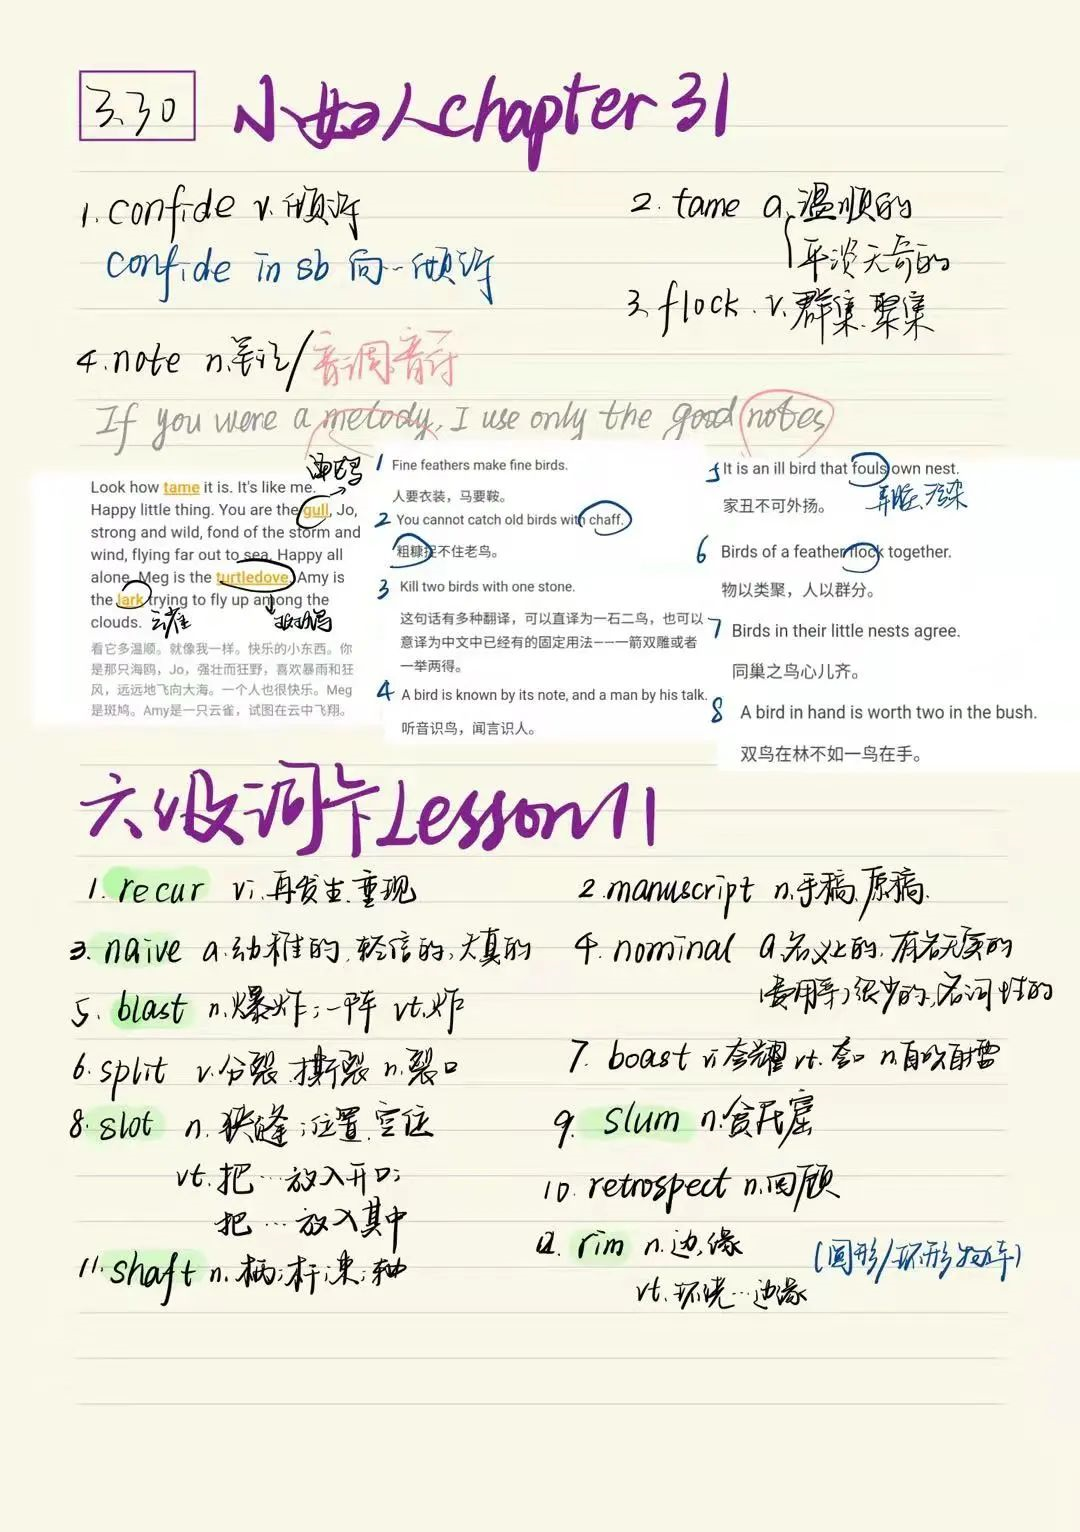 3.30
小妇人chapter 31
1. confide v.倾诉
confide in sb 向…倾诉
2. tame a.温顺的
平淡无奇的
3. flock v.群集.聚集
4. note n.笔记/音调.音符
If you were a melody, I use only the good notes
海鸥
Look how tame it is. It's like me.
Happy little thing. You are the gull, Jo,
strong and wild, fond of the storm and
wind, flying far out to sea. Happy all
alone. Meg is the turtledove. Amy is
the lark trying to fly up among the
clouds.
云雀
斑鸠
看它多温顺。就像我一样。快乐的小东西。你
是那只海鸥，Jo，强壮而狂野，喜欢暴雨和狂
风，远远地飞向大海。一个人也很快乐。Meg
是斑鸠。Amy是一只云雀，试图在云中飞翔。
1 Fine feathers make fine birds.
人要衣装，马要鞍。
2 You cannot catch old birds with chaff.
粗糠捉不住老鸟。
3 Kill two birds with one stone.
这句话有多种翻译，可以直译为一石二鸟，也可以
意译为中文中已经有的固定用法———箭双雕或者
一举两得。
4 A bird is known by its note, and a man by his talk.
听音识鸟，闻言识人。
5 It is an ill bird that fouls own nest.
家丑不可外扬。
弄脏.污染
6 Birds of a feather flock together.
物以类聚，人以群分。
7 Birds in their little nests agree.
同巢之鸟心儿齐。
8 A bird in hand is worth two in the bush.
双鸟在林不如一鸟在手。
六级词卡Lesson11
1. recur vi.再发生.重现
2. manuscript n.手稿.原稿.
3. naive a.幼稚的.轻信的,天真的
4. nominal a.名义上的.有名无实的
(费用等)很少的,名词性的
5. blast n.爆炸;一阵 vt.炸
6. split v.分裂.撕裂 n.裂口
7. boast vi夸耀 vt.夸口 n.自吹自擂
8. slot n.狭缝;位置.空位
vt.把…放入开口;
把…放入其中
9. slum n.贫民窟
10. retrospect n.回顾
11. shaft n.柄;杆;束;轴
12. rim n.边,缘
(圆形/环形物体)
vt.环绕…边缘